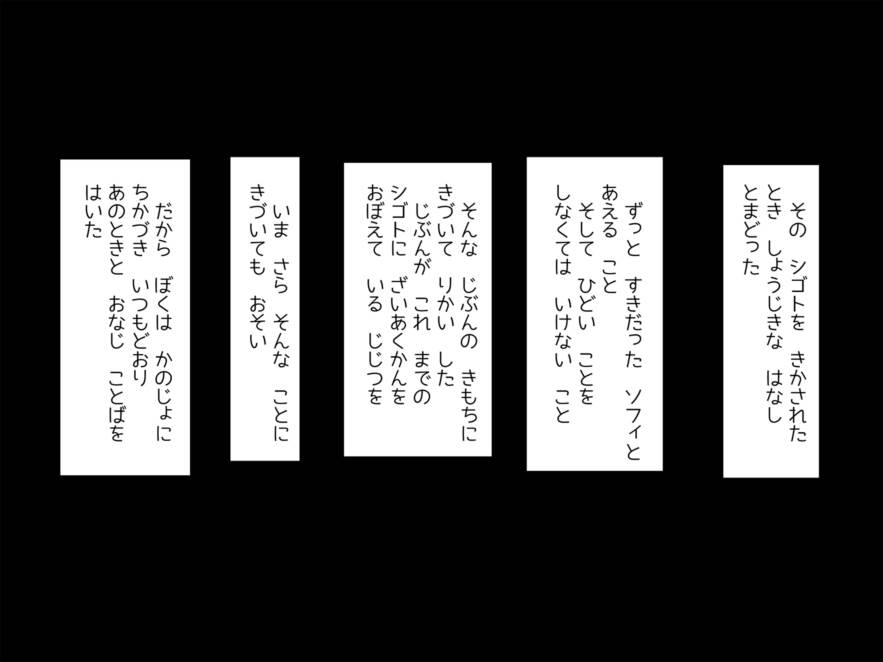 その　シゴトを　きかされた
とき　しょうじきな　はなし
とまどった
ずっと　すきだった　ソフィと
あえる　こと
そして　ひどい　ことを
しなくては　いけない　こと
そんな　じぶんの　きもちに
きづいて　りかい　した
じぶんが　これ　までの
シゴトに　ざいあくかんを
おぼえて　いる　じじつを
いま　さら　そんな　ことに
きづいても　おそい
だから　ぼくは　かのじょに
ちかづき　いつもどおり
あのときと　おなじ　ことばを
はいた